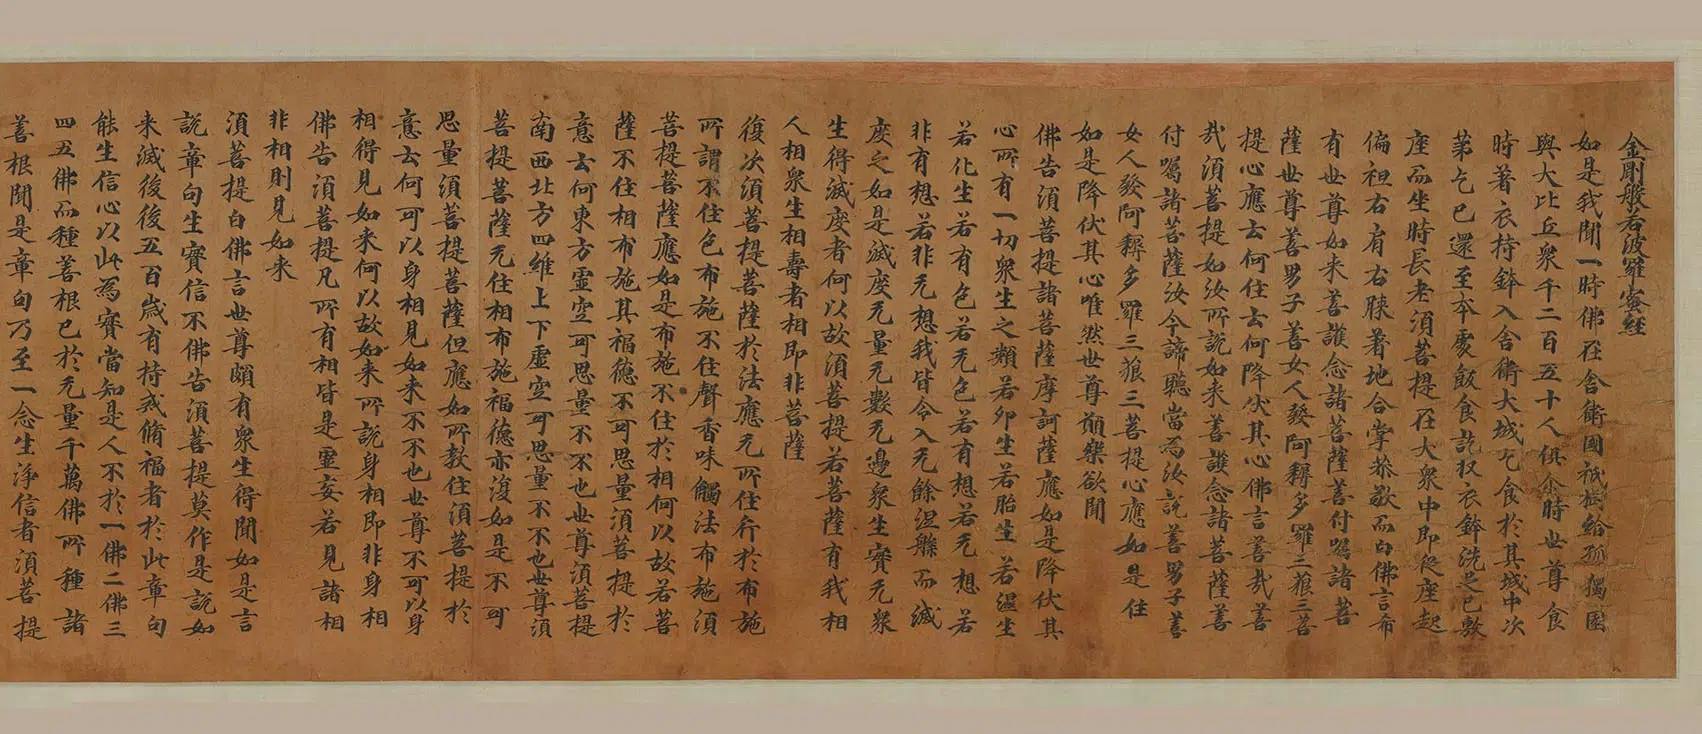 金剛般若波羅蜜經
如是我聞一時佛在舍衛國祇樹給孤獨園
與大比丘衆千二百五十人俱尒時世尊食
時著衣持鉢入舍衛大城乞食於其城中次
苐乞已還至本處飯食訖収衣鉢洗足已敷
座而坐時長老須菩提在大衆中即從座起
偏袒右肩右膝著地合掌恭敬而白佛言希
有世尊如来善護念諸菩薩善付囑諸菩
薩世尊善男子善女人發阿耨多羅三藐三菩
提心應云何住云何降伏其心佛言善㦲善
㦲須菩提如汝所說如来善護念諸菩薩善
付囑諸菩薩汝今諦聽當為汝說善男子善
女人發阿耨多羅三藐三菩提心應如是住
如是降伏其心唯然世尊願樂欲聞
佛告須菩提諸菩薩摩訶薩應如是降伏其
心所有一切衆生之類若卵生若胎生若濕生
若化生若有色若无色若有想若无想若
非有想若非无想我皆令入无餘涅槃而滅
度之如是滅度无量无數无邊衆生實无衆
生得滅度者何以故須菩提若菩薩有我相
人相衆生相壽者相即非菩薩
復次須菩提菩薩於法應无所住行於布施
所謂不住色布施不住聲香味觸法布施須
菩提菩薩應如是布施不住於相何以故若菩
薩不住相布施其福德不可思量須菩提於
意云何東方虛空可思量不不也世尊須菩提
南西北方四維上下虛空可思量不不也世尊須
菩提菩薩无住相布施福德亦復如是不可
思量須菩提菩薩但應如所教住須菩提於
意云何可以身相見如来不不也世尊不可以身
相得見如来何以故如来所說身相即非身相
佛告須菩提凡所有相皆是虛妄若見諸相
非相則見如来
須菩提白佛言世尊頗有衆生得聞如是言
說章句生實信不佛告須菩提莫作是說如
来滅後後五百歲有持戒脩福者於此章句
能生信心以此為實當知是人不於一佛二佛三
四五佛而種善根已於无量千萬佛所種諸
善根聞是章句乃至一念生淨信者須菩提